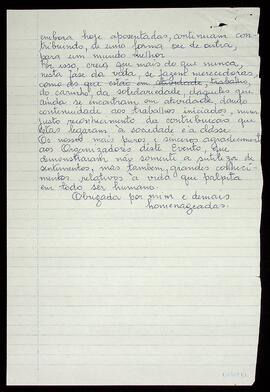 embora hoje aposentadas, continuam con-
tribuindo, de uma forma ou de outra,
para um mundo melhor.
Por isso, creio que mais do que nunca,
nesta fase da vida, se fazem merecedoras,
como as que estão em atividade, trabalho,
do carinho, da solidariedade, daqueles que
ainda se encontram em atividade, dando
continuidade aos trabalhos iniciados, num
justo reconhecimento da contribuição que
elas legaram à sociedade e à classe.
Os nossos mais puros e sinceros agradecimentos
aos Organizadores deste Evento, que
demonstraram não somente a sutileza de
sentimentos, mas também, grandes conheci-
mentos relativos à vida que palpita
em todo ser humano.
Obrigada por mim e demais
homenageadas.